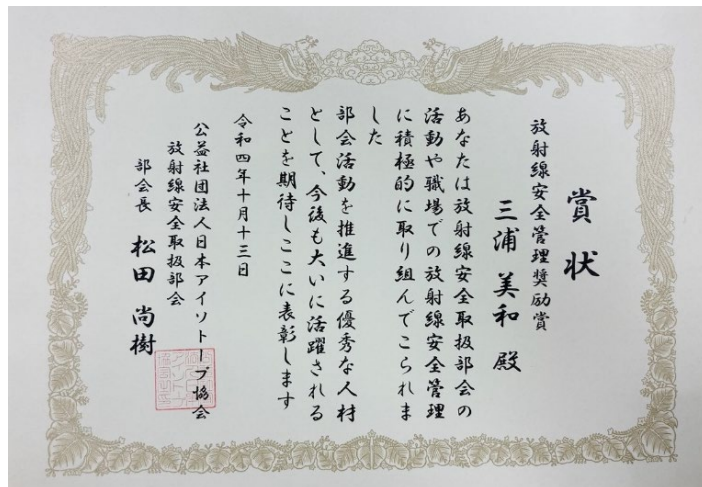 賞状
放射線安全管理奨励賞
三浦 美和 殿
あなたは放射線安全取扱部会の
活動や職場での放射線安全管理
に積極的に取り組んでこられま
した
部会活動を推進する優秀な人材
として、今後も大いに活躍される
ことを期待しここに表彰します
令和四年十月十三日
公益社団法人日本アイソトープ協会
放射線安全取扱部会
部会長 松田 尚樹